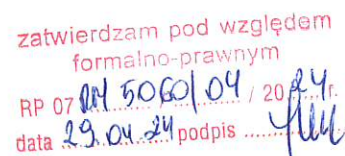 zatwierdzam pod względem
formalno-prawnym
RP 07 RM 5060/04 / 2024r.
data 29.04.24 podpis